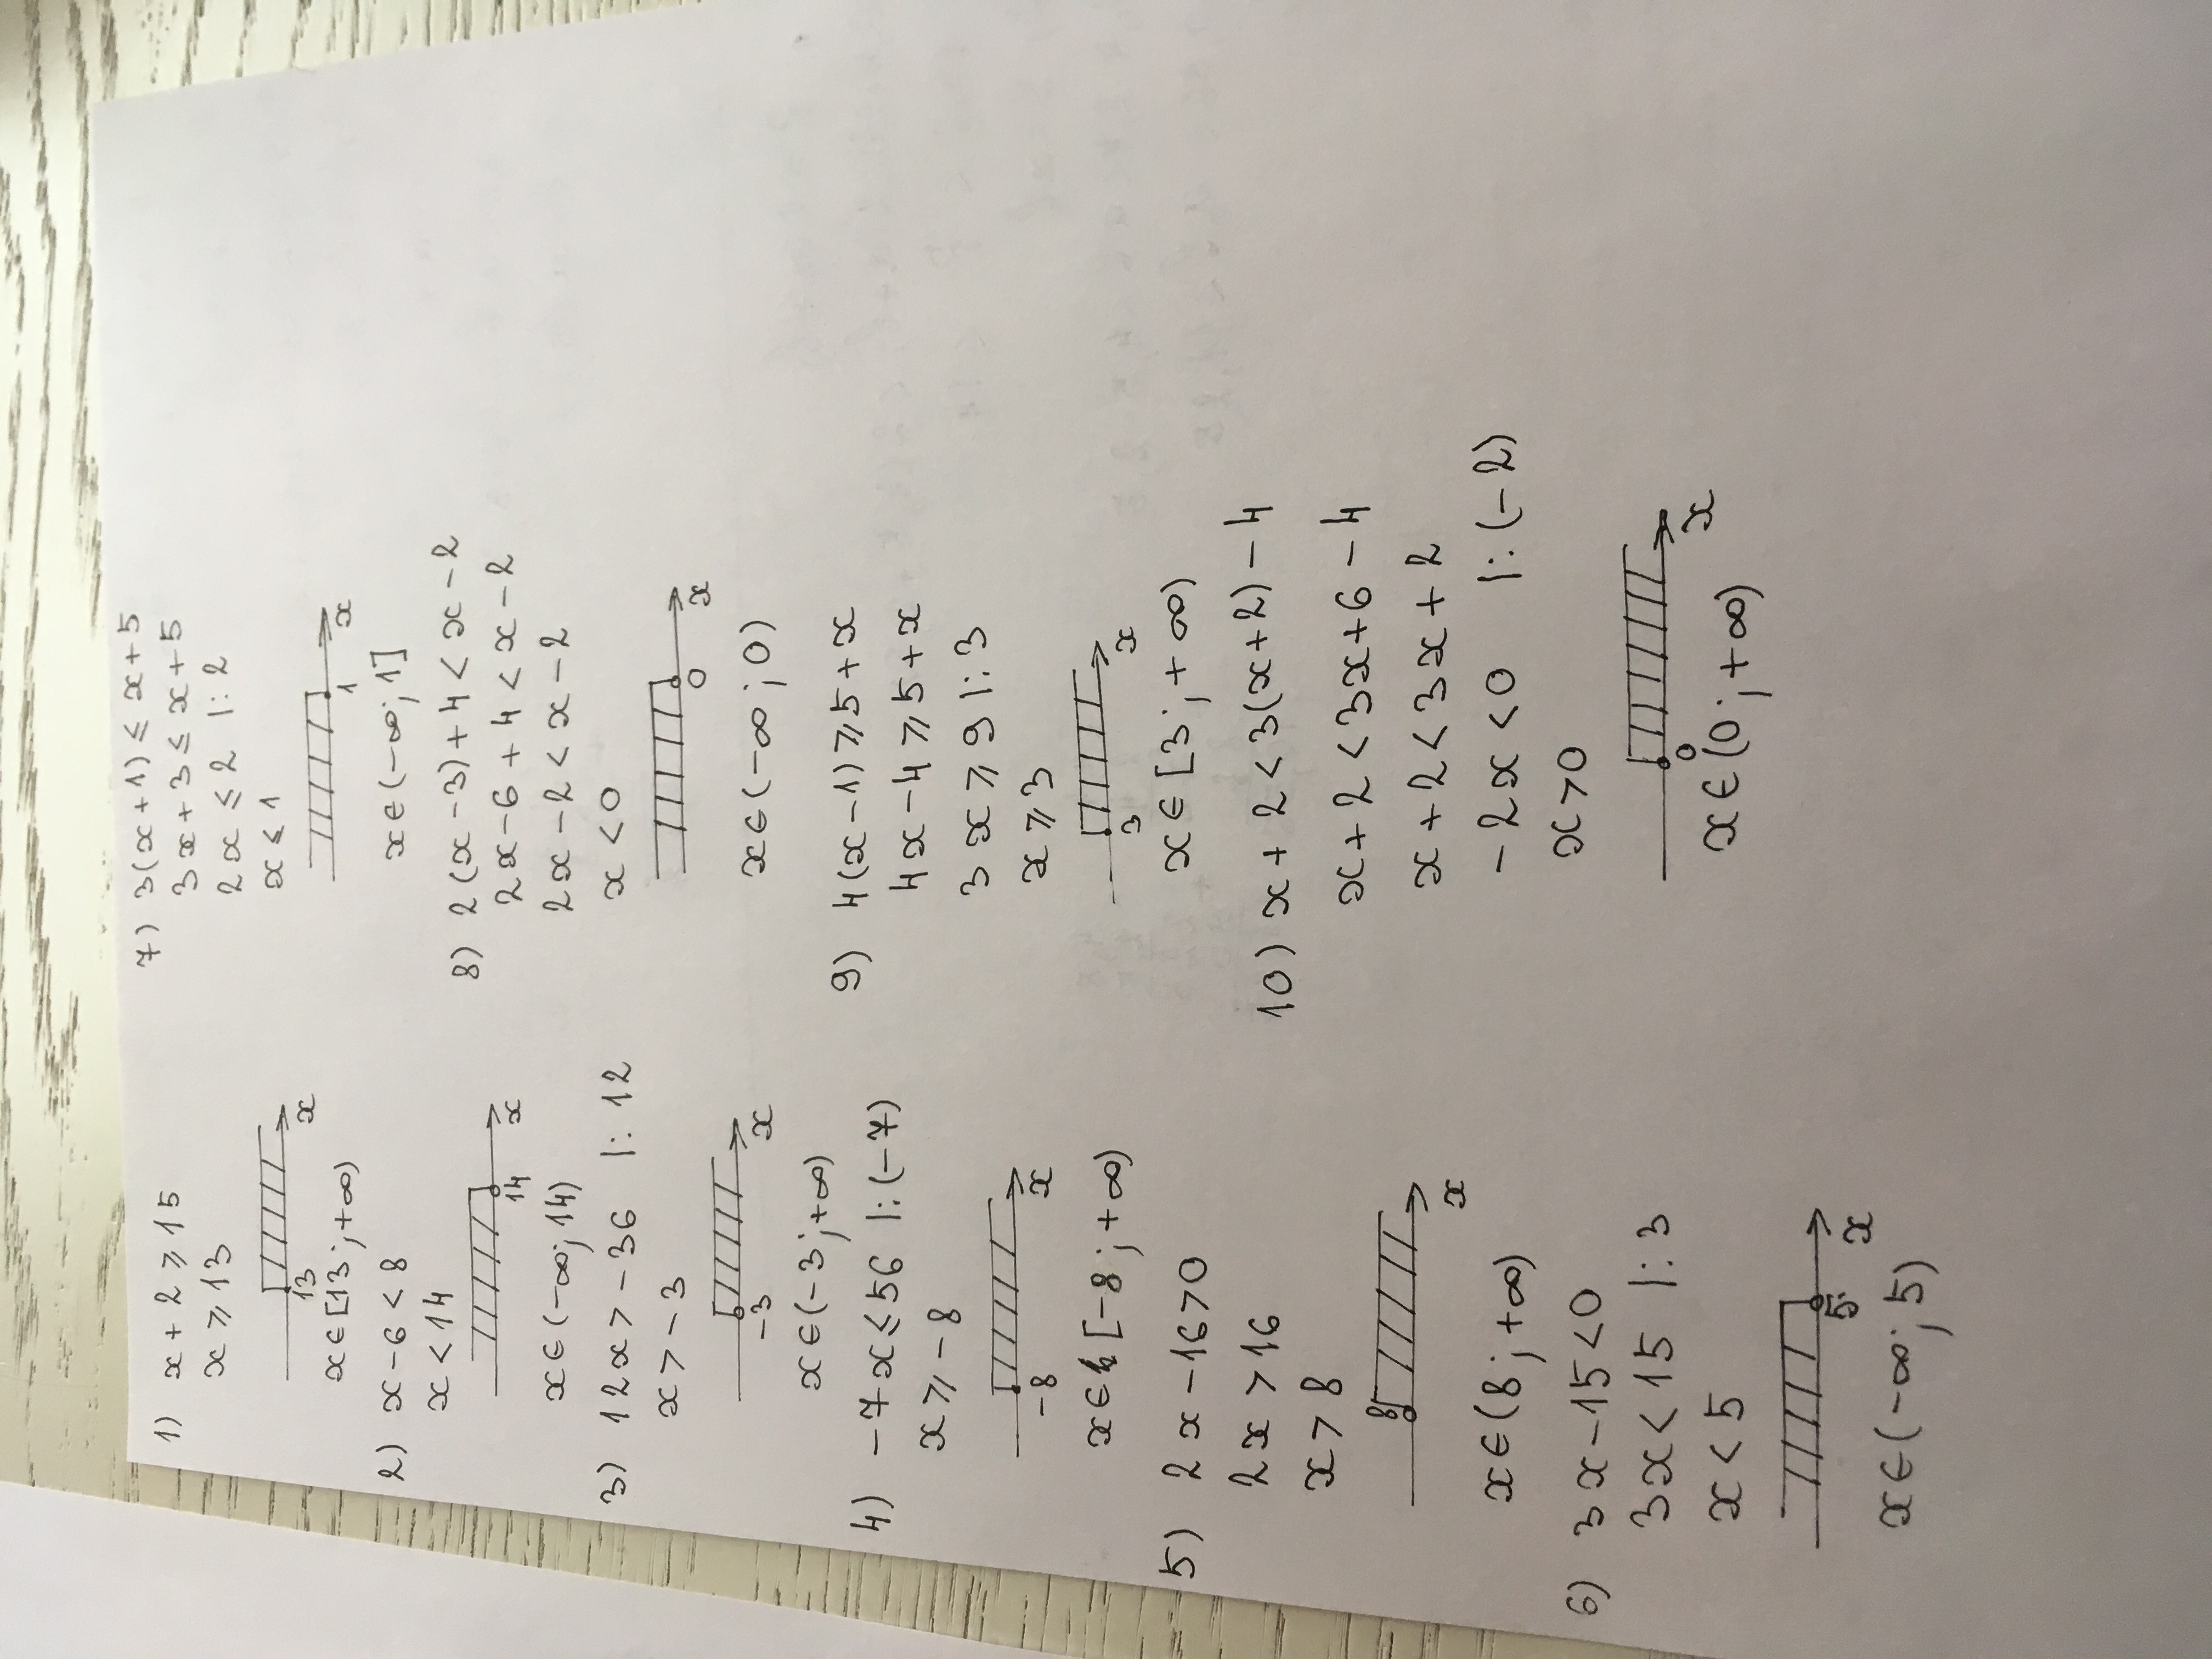 1) x + 2 ⩾ 15
x ⩾ 13
13 x
x ∈ [13 ; +∞)
2) x - 6 < 8
x < 14
14 x
x ∈ (-∞; 14)
3) 12x > -36 |: 12
x > -3
-3 x
x ∈ (-3 ; +∞)
4) -7x ≤ 56 |: (-7)
x ⩾ -8
-8 x
x ∈ [-8 ; +∞)
5) 2x - 16 > 0
2x > 16
x > 8
8 x
x ∈ (8 ; +∞)
6) 3x - 15 < 0
3x < 15 |: 3
x < 5
5 x
x ∈ (-∞; 5)
7) 3(x + 1) ≤ x + 5
3x + 3 ≤ x + 5
2x ≤ 2 |: 2
x ≤ 1
1 x
x ∈ (-∞; 1]
8) 2(x - 3) + 4 < x - 2
2x - 6 + 4 < x - 2
2x - 2 < x - 2
x < 0
0 x
x ∈ (-∞ ; 0)
9) 4(x - 1) ⩾ 5 + x
4x - 4 ⩾ 5 + x
3x ⩾ 9 |: 3
x ⩾ 3
3 x
x ∈ [3 ; +∞)
10) x + 2 < 3(x + 2) - 4
x + 2 < 3x + 6 - 4
x + 2 < 3x + 2
-2x < 0 |: (-2)
x > 0
0 x
x ∈ (0 ; +∞)